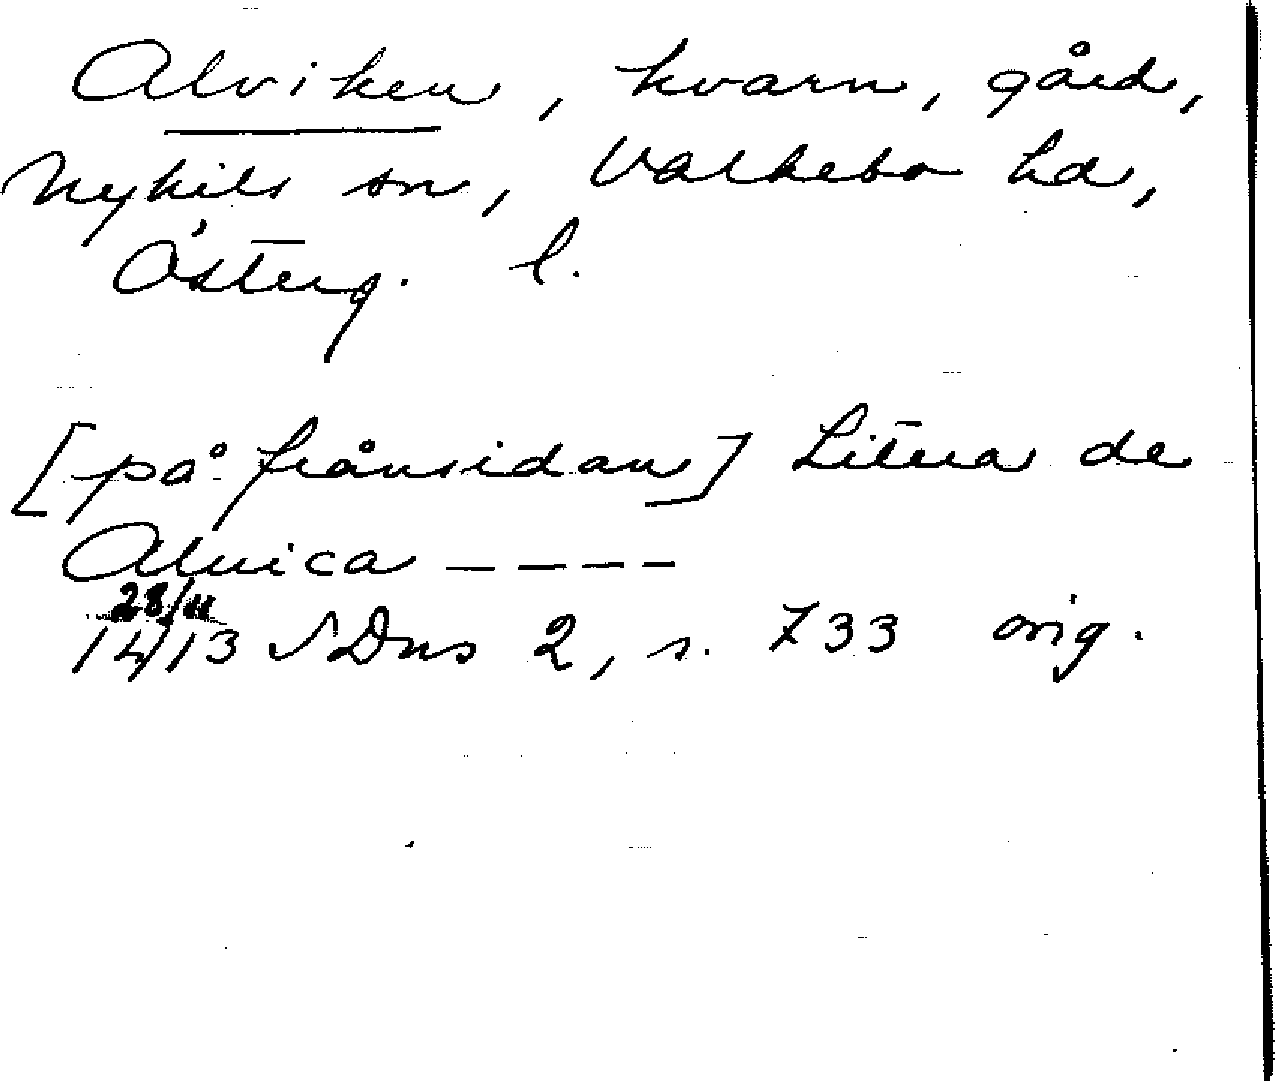 Alviken, kvarn, gård,
Nykils sn, Valkebo hd,
Österg. l.
[på frånsidan] Litera de
Aluica -----
28/11
1413 SDns 2, s. 733 orig.